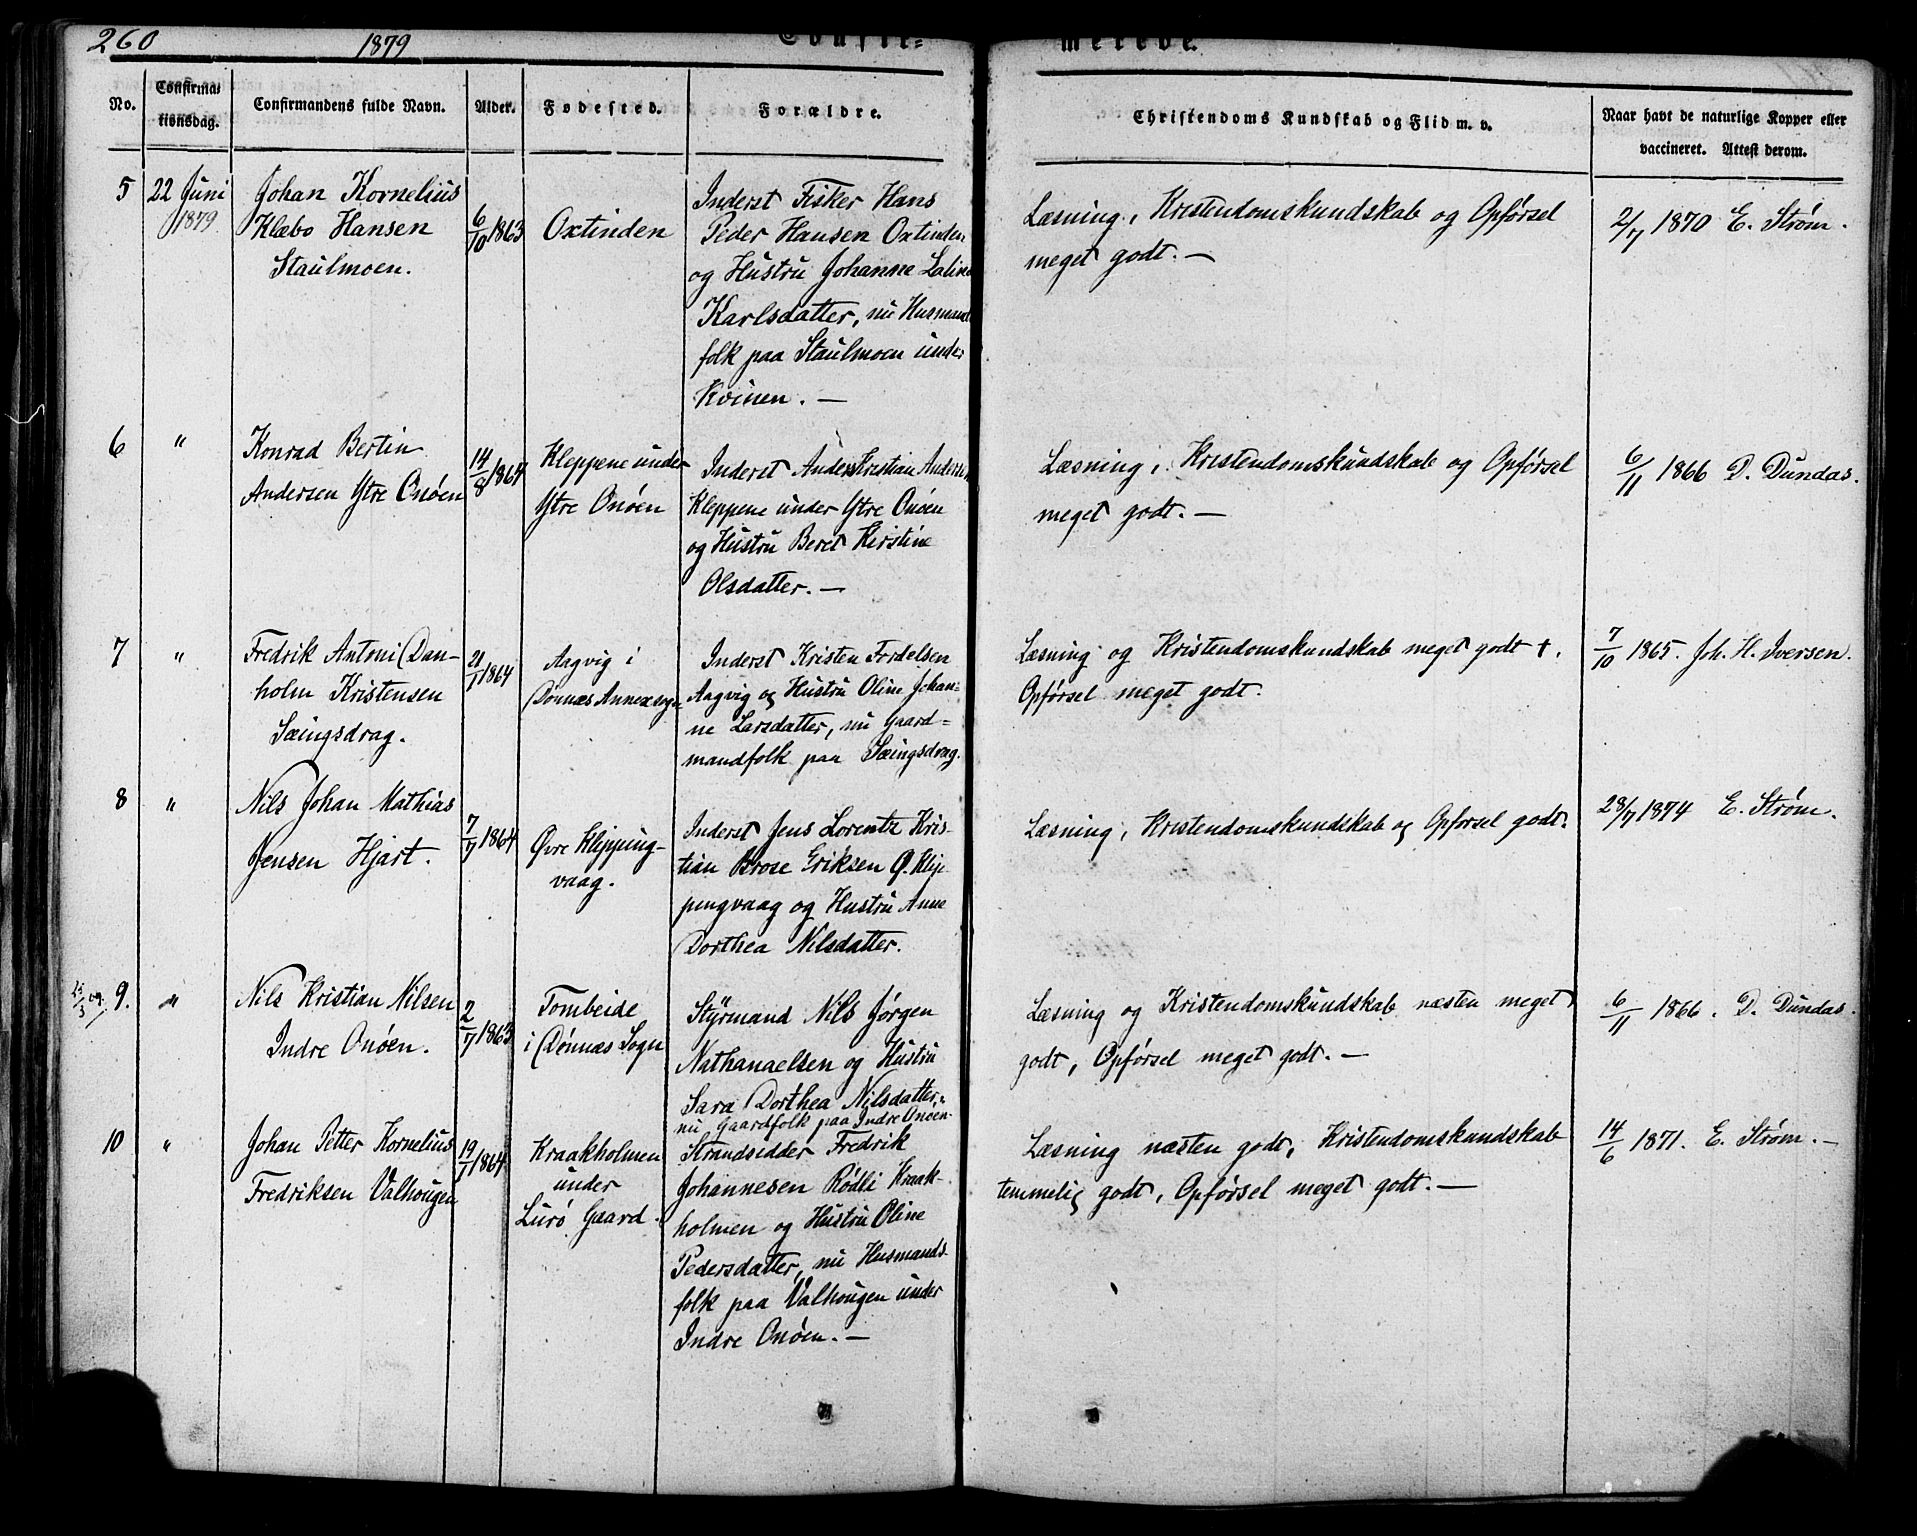 260
1879
Confir=
merede.
No.
Confirma-
tionsdag.
Confirmandens fulde Navn.
Alder.
Fødested.
Forældre.
Christendoms Kundskab og Flid m. v.
Naar havt de naturlige Kopper eller
vaccineret. Attest derom.
5
22 Juni
1879
Johan Kornelius
Klæbo Hansen
Staulmoen.
6/10 1863
Oxtinden
Inderst Fisker Hans
Peder Hansen Oxtinden
og Hustru Johanne Laline
Karlsdatter, nu Husmands
folk paa Staulmoen under
Kvinen. —
Læsning, Kristendomskundskab og Opførsel
meget godt. —
2/7 1870 E. Strøm.
6
"
Konrad Bertin
Andersen Ytre Onøen
14/8 1864
Kleppene under
Ytre Onøen
Inderst Anders Kristian Andersen
Kleppene under Ytre Onøen
og Hustru Beret Kirstine
Olsdatter. —
Læsning, Kristendomskundskab og Opførsel
meget godt. —
6/11 1866 D. Dundas.
7
"
Fredrik Antoni Dan-
holm Kristensen
Sæingsdrag.
21/1 1864
Aagvig i
Dønnæs Annexsogn
Inderst Kristen Fredelsen
Aagvig og Hustru Oline Johan=
ne Larsdatter, nu Gaard=
mandfolk paa Sæingsdrag.
Læsning og Kristendomskundskab meget godt +.
Opførsel meget godt.
7/10 1865. Joh. H. Iversen.
8
"
Nils Johan Mathias
Jensen Hjart.
7/7 1864
Øvre Klepping-
vaag.
Inderst Jens Lorentz Kris-
tian Brose Eriksen Ø. Klip-
pingvaag og Hustru Anne
Dorthea Nilsdatter.
Læsning, Kristendomskundskab og Opførsel godt.
28/7 1874 E. Strøm.
9.
"
Nils Kristian Nilsen
Indre Onøen.
2/7 1863
Tombeide
i Dønnæs Sogn
Styrmand Nils Jørgen
Nathanaelsen og Hustru
Sara Dorthea Nilsdatter,
nu Gaardfolk paa Indre Onøen.
Læsning og Kristendomskundskab næsten meget
godt, Opførsel meget godt. —
6/11 1866. D. Dundas.
10
"
Johan Petter Kornelius
Fredriksen Valhougen
19/7 1864
Kraakholmen
under
Lurø Gaard.
Strandsidder Fredrik
Johannesen Rødli Kraak-
holmen og Hustru Oline
Pedersdatter, nu Husmands-
folk paa Valhougen under
Indre Onøen. —
Læsning næsten godt, Kristendomskundskab
temmelig godt, Opførsel meget godt. —
14/6 1871. E. Strøm. —